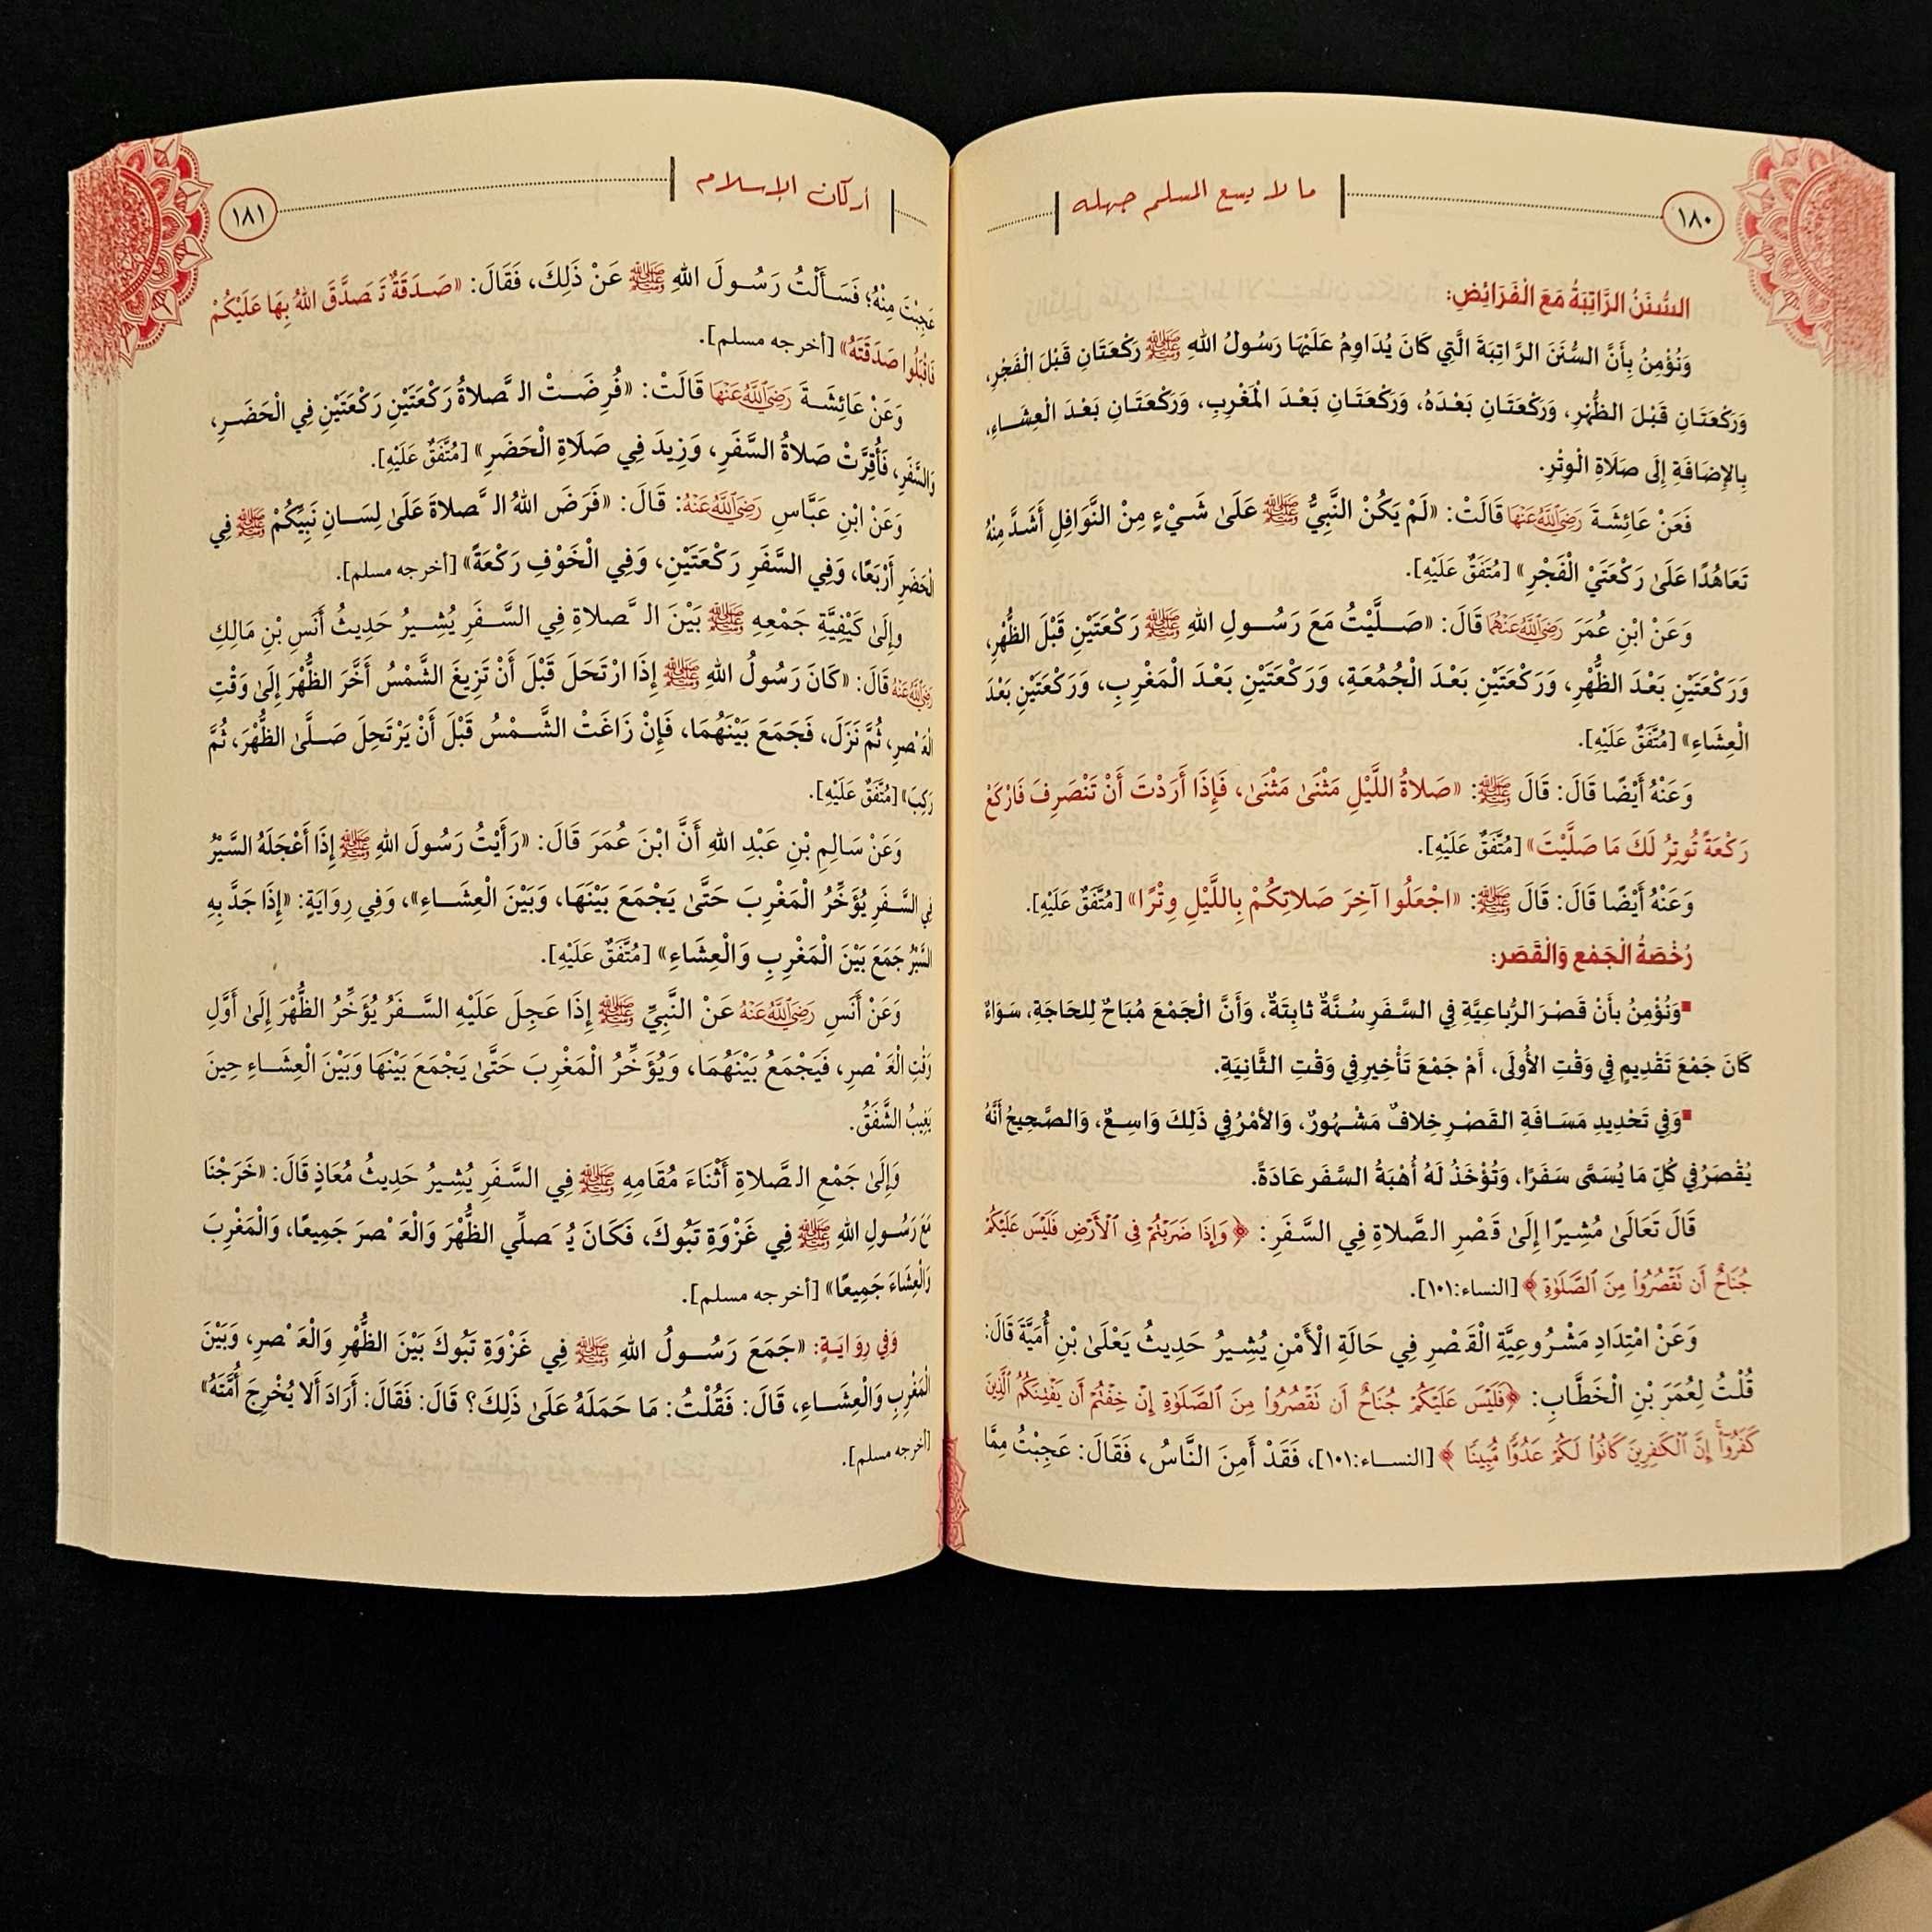 ١٨٠
ما لا يسع المسلم جهله
السُّنَنُ الرَّاتِبَةُ مَعَ الْفَرَائِضِ:
وَنُؤْمِنُ بِأَنَّ السُّنَنَ الرَّاتِبَةَ الَّتِي كَانَ يُدَاوِمُ عَلَيْهَا رَسُولُ اللهِ ﷺ رَكْعَتَانِ قَبْلَ الْفَجْرِ،
وَرَكْعَتَانِ قَبْلَ الظُّهْرِ، وَرَكْعَتَانِ بَعْدَهُ، وَرَكْعَتَانِ بَعْدَ الْمَغْرِبِ، وَرَكْعَتَانِ بَعْدَ الْعِشَاءِ،
بِالإِضَافَةِ إِلَى صَلَاةِ الْوِتْرِ.
فَعَنْ عَائِشَةَ رَضِيَ اللَّهُ عَنْهَا قَالَتْ: «لَمْ يَكُنْ النَّبِيُّ ﷺ عَلَىٰ شَيْءٍ مِنْ النَّوَافِلِ أَشَدَّ مِنْهُ
تَعَاهُدًا عَلَىٰ رَكْعَتَيْ الْفَجْرِ» [مُتَّفَقٌ عَلَيْهِ].
وَعَنْ ابْنِ عُمَرَ رَضِيَ اللَّهُ عَنْهُمَا قَالَ: «صَلَّيْتُ مَعَ رَسُولِ اللهِ ﷺ رَكْعَتَيْنِ قَبْلَ الظُّهْرِ،
وَرَكْعَتَيْنِ بَعْدَ الظُّهْرِ، وَرَكْعَتَيْنِ بَعْدَ الْجُمُعَةِ، وَرَكْعَتَيْنِ بَعْدَ الْمَغْرِبِ، وَرَكْعَتَيْنِ بَعْدَ
الْعِشَاءِ» [مُتَّفَقٌ عَلَيْهِ].
وَعَنْهُ أَيْضًا قَالَ: قَالَ ﷺ: «صَلاةُ اللَّيْلِ مَثْنَىٰ مَثْنَىٰ، فَإِذَا أَرَدْتَ أَنْ تَنْصَرِفَ فَارْكَعْ
رَكْعَةً تُوتِرُ لَكَ مَا صَلَّيْتَ» [مُتَّفَقٌ عَلَيْهِ].
وَعَنْهُ أَيْضًا قَالَ: قَالَ ﷺ: «اجْعَلُوا آخِرَ صَلاتِكُمْ بِاللَّيْلِ وِتْرًا» [مُتَّفَقٌ عَلَيْهِ].
رُخْصَةُ الْجَمْعِ وَالْقَصْرِ:
▪ وَنُؤْمِنُ بِأَنْ قَصْرَ الرُّبَاعِيَّةِ فِي السَّفَرِ سُنَّةٌ ثَابِتَةٌ، وَأَنَّ الْجَمْعَ مُبَاحٌ لِلحَاجَةِ، سَوَاءٌ
كَانَ جَمْعَ تَقْدِيمٍ فِي وَقْتِ الأُولَى، أَمْ جَمْعَ تَأْخِيرٍ فِي وَقْتِ الثَّانِيَةِ.
▪ وَفِي تَحْدِيدِ مَسَافَةِ القَصْرِ خِلافٌ مَشْهُورٌ، وَالأَمْرُ فِي ذَلِكَ وَاسِعٌ، وَالصَّحِيحُ أَنَّهُ
يُقْصَرُ فِي كُلِّ مَا يُسَمَّى سَفَرًا، وَتُؤْخَذُ لَهُ أُهْبَةُ السَّفَرِ عَادَةً.
قَالَ تَعَالَىٰ مُشِيرًا إِلَىٰ قَصْرِ الصَّلاةِ فِي السَّفَرِ: ﴿وَإِذَا ضَرَبْتُمْ فِى ٱلْأَرْضِ فَلَيْسَ عَلَيْكُمْ
جُنَاحٌ أَن تَقْصُرُوا۟ مِنَ ٱلصَّلَوٰةِ﴾ [النساء:١٠١].
وَعَنْ امْتِدَادِ مَشْرُوعِيَّةِ الْقَصْرِ فِي حَالَةِ الْأَمْنِ يُشِيرُ حَدِيثُ يَعْلَىٰ بْنِ أُمَيَّةَ قَالَ:
قُلْتُ لِعُمَرَ بْنِ الْخَطَّابِ: ﴿فَلَيْسَ عَلَيْكُمْ جُنَاحٌ أَن تَقْصُرُوا۟ مِنَ ٱلصَّلَوٰةِ إِنْ خِفْتُمْ أَن يَفْتِنَكُمُ ٱلَّذِينَ
كَفَرُوٓا۟ إِنَّ ٱلْكَٰفِرِينَ كَانُوا۟ لَكُمْ عَدُوًّا مُّبِينًا﴾ [النساء:١٠١]، فَقَدْ أَمِنَ النَّاسُ، فَقَالَ: عَجِبْتُ مِمَّا
أركان الإسلام
١٨١
عَجِبْتَ مِنْهُ؛ فَسَأَلْتُ رَسُولَ اللهِ ﷺ عَنْ ذَلِكَ، فَقَالَ: «صَدَقَةٌ تَصَدَّقَ اللهُ بِهَا عَلَيْكُمْ
فَاقْبَلُوا صَدَقَتَهُ» [أخرجه مسلم].
وَعَنْ عَائِشَةَ رَضِيَ اللَّهُ عَنْهَا قَالَتْ: «فُرِضَتْ الصَّلاةُ رَكْعَتَيْنِ رَكْعَتَيْنِ فِي الْحَضَرِ،
وَالسَّفَرِ، فَأُقِرَّتْ صَلاةُ السَّفَرِ، وَزِيدَ فِي صَلَاةِ الْحَضَرِ» [مُتَّفَقٌ عَلَيْهِ].
وَعَنْ ابْنِ عَبَّاسٍ رَضِيَ اللَّهُ عَنْهُ: قَالَ: «فَرَضَ اللهُ الصَّلاةَ عَلَىٰ لِسَانِ نَبِيِّكُمْ ﷺ فِي
الْحَضَرِ أَرْبَعًا، وَفِي السَّفَرِ رَكْعَتَيْنِ، وَفِي الْخَوْفِ رَكْعَةً» [أخرجه مسلم].
وإِلَىٰ كَيْفِيَّةِ جَمْعِهِ ﷺ بَيْنَ الصَّلاةِ فِي السَّفَرِ يُشِيرُ حَدِيثُ أَنَسِ بْنِ مَالِكٍ
رَضِيَ اللَّهُ عَنْهُ قَالَ: «كَانَ رَسُولُ اللهِ ﷺ إِذَا ارْتَحَلَ قَبْلَ أَنْ تَزِيغَ الشَّمْسُ أَخَّرَ الظُّهْرَ إِلَىٰ وَقْتِ
الْعَصْرِ، ثُمَّ نَزَلَ، فَجَمَعَ بَيْنَهُمَا، فَإِنْ زَاغَتْ الشَّمْسُ قَبْلَ أَنْ يَرْتَحِلَ صَلَّىٰ الظُّهْرَ، ثُمَّ
رَكِبَ» [مُتَّفَقٌ عَلَيْهِ].
وَعَنْ سَالِمِ بْنِ عَبْدِ اللهِ أَنَّ ابْنَ عُمَرَ قَالَ: «رَأَيْتُ رَسُولَ اللهِ ﷺ إِذَا أَعْجَلَهُ السَّيْرُ
فِي السَّفَرِ يُؤَخِّرُ الْمَغْرِبَ حَتَّىٰ يَجْمَعَ بَيْنَهَا، وَبَيْنَ الْعِشَاءِ»، وَفِي رِوَايَةٍ: «إِذَا جَدَّ بِهِ
السَّيْرُ جَمَعَ بَيْنَ الْمَغْرِبِ وَالْعِشَاءِ» [مُتَّفَقٌ عَلَيْهِ].
وَعَنْ أَنَسٍ رَضِيَ اللَّهُ عَنْهُ عَنْ النَّبِيِّ ﷺ إِذَا عَجِلَ عَلَيْهِ السَّفَرُ يُؤَخِّرُ الظُّهْرَ إِلَىٰ أَوَّلِ
وَقْتِ الْعَصْرِ، فَيَجْمَعُ بَيْنَهُمَا، وَيُؤَخِّرُ الْمَغْرِبَ حَتَّىٰ يَجْمَعَ بَيْنَهَا وَبَيْنَ الْعِشَاءِ حِينَ
يَغِيبُ الشَّفَقُ.
وَإِلَىٰ جَمْعِ الصَّلاةِ أَثْنَاءَ مُقَامِهِ ﷺ فِي السَّفَرِ يُشِيرُ حَدِيثُ مُعَاذٍ قَالَ: «خَرَجْنَا
مَعَ رَسُولِ اللهِ ﷺ فِي غَزْوَةِ تَبُوكَ، فَكَانَ يُصَلِّي الظُّهْرَ وَالْعَصْرَ جَمِيعًا، وَالْمَغْرِبَ
وَالْعِشَاءَ جَمِيعًا» [أخرجه مسلم].
وَفِي رِوَايَةٍ: «جَمَعَ رَسُولُ اللهِ ﷺ فِي غَزْوَةِ تَبُوكَ بَيْنَ الظُّهْرِ وَالْعَصْرِ، وَبَيْنَ
الْمَغْرِبِ وَالْعِشَاءِ، قَالَ: فَقُلْتُ: مَا حَمَلَهُ عَلَىٰ ذَلِكَ؟ قَالَ: فَقَالَ: أَرَادَ أَلا يُحْرِجَ أُمَّتَهُ»
[أخرجه مسلم].